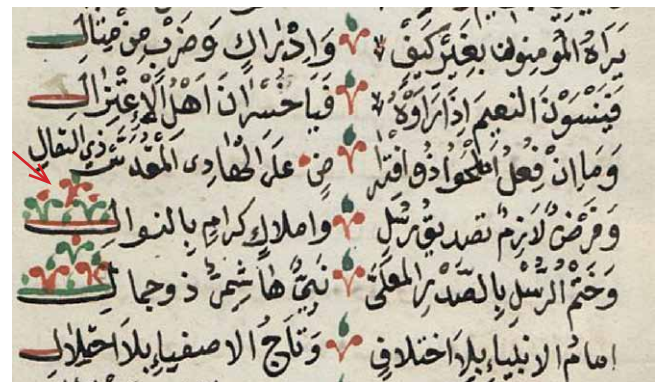 يَرَاهُ الْمُومِنُونَ بِغَيْرِ كَيْفٍ وَاِدْرَاكٍ وَضَرْبٍ مِنْ مِثَالِ
فَيَنْسَوْنَ النَعِيمَ اِذَا رَاَوْهُ فَيَا خُسْرَانَ اَهْلِ الْاِعْتِزَالِ
وَمَا اِنْ فِعْلُ ذُو افْتِرَا ضٍ عَلَى الْهَادِى الْمُقَدَّسِ ذِي التعَالِ
وَفَرْضٌ لَازِمٌ تصديقُ رُسُلٍ واملاكٍ كرامٍ بِالنوالِ
وَخَتْمُ الرُسْلِ بِالصَّدْرِ المعَلَّى نَبِيٌّ هَاشِمِىٌّ ذو جمالِ
امامُ الانبياءِ بِلَا اختلافٍ وَتَاجُ الاصفياءِ بِلَا احْتِلَالِ